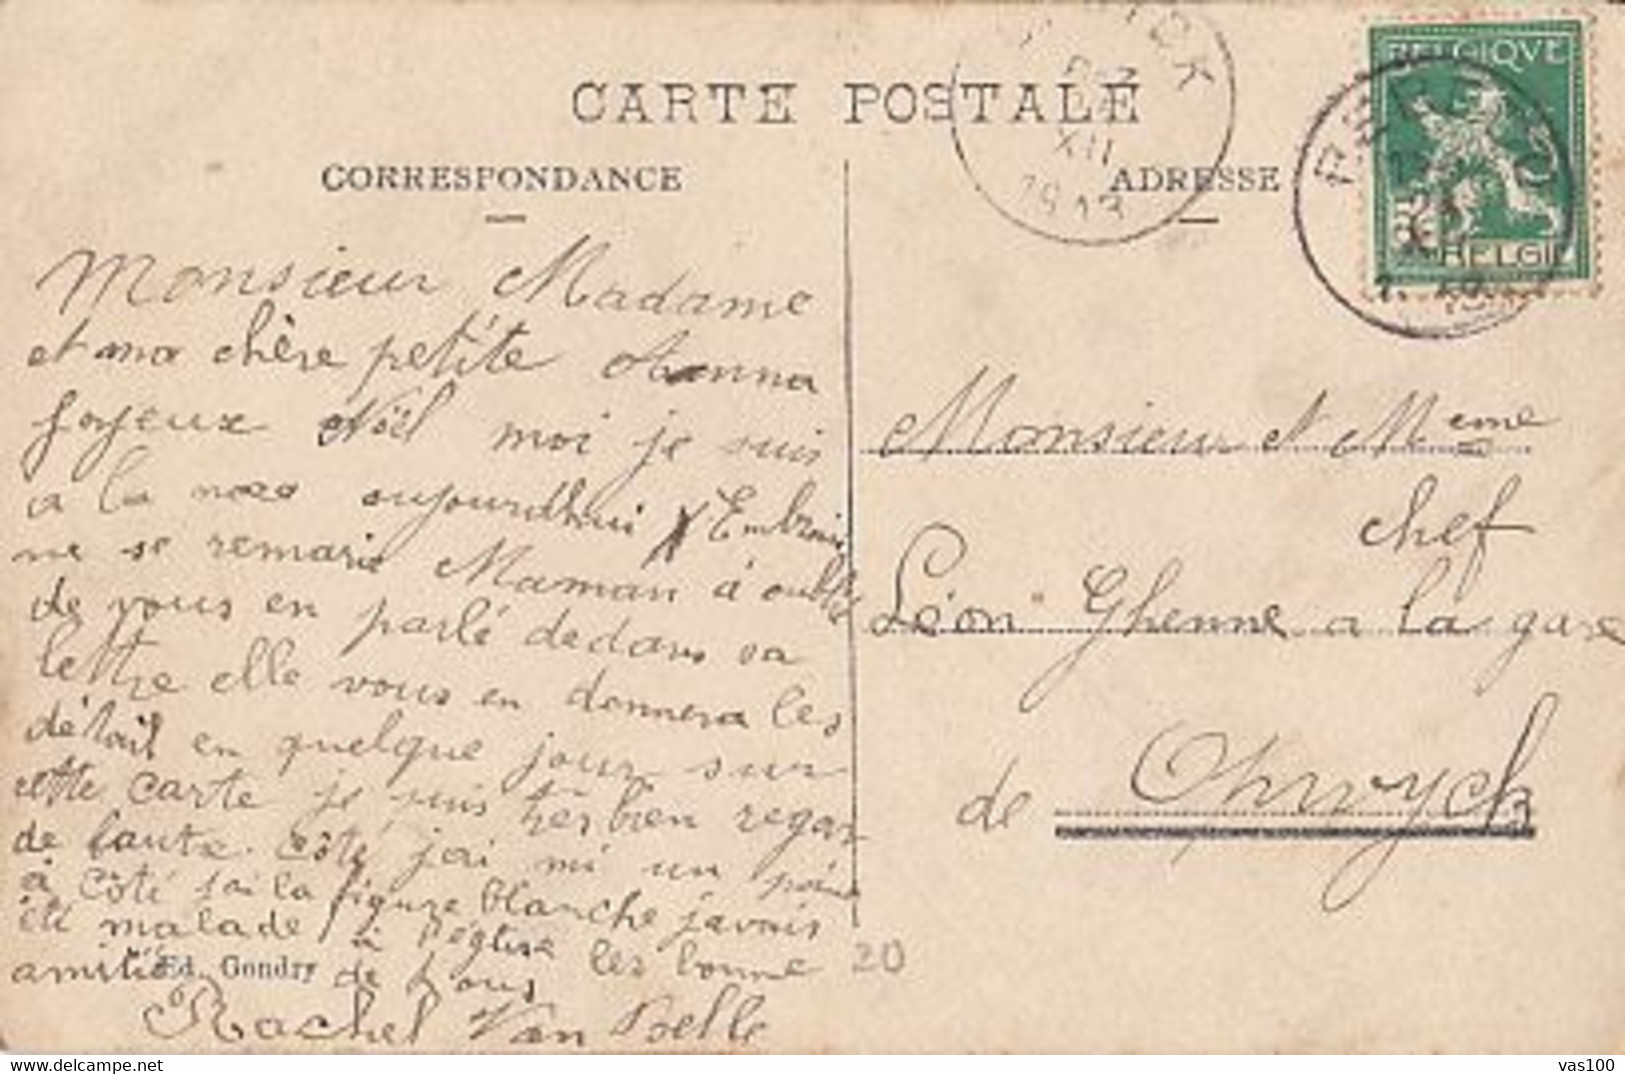 CARTE POSTALE
CORRESPONDANCE
Monsieur Madame
et ma chère petite Anna
Joyeux Noël moi je suis
a la noce aujourdhui
ne se remarie Maman à oublié
de vous en parlé dedans sa
lettre elle vous en donnera les
détail en quelque jour sur
cette carte je suis très bien regar
de l'autre côté j'ai mi un
à côté j'ai la figure blanche javais
été malade à l'église les bonne
amitié de tous
Ed. Gondry
Rachel Van Belle
20
ADRESSE
XII
1913
BELGIQVE
BELGIË
Monsieur et Meme
chef
Léon Ghenne a la gare
de Opwych
vas100